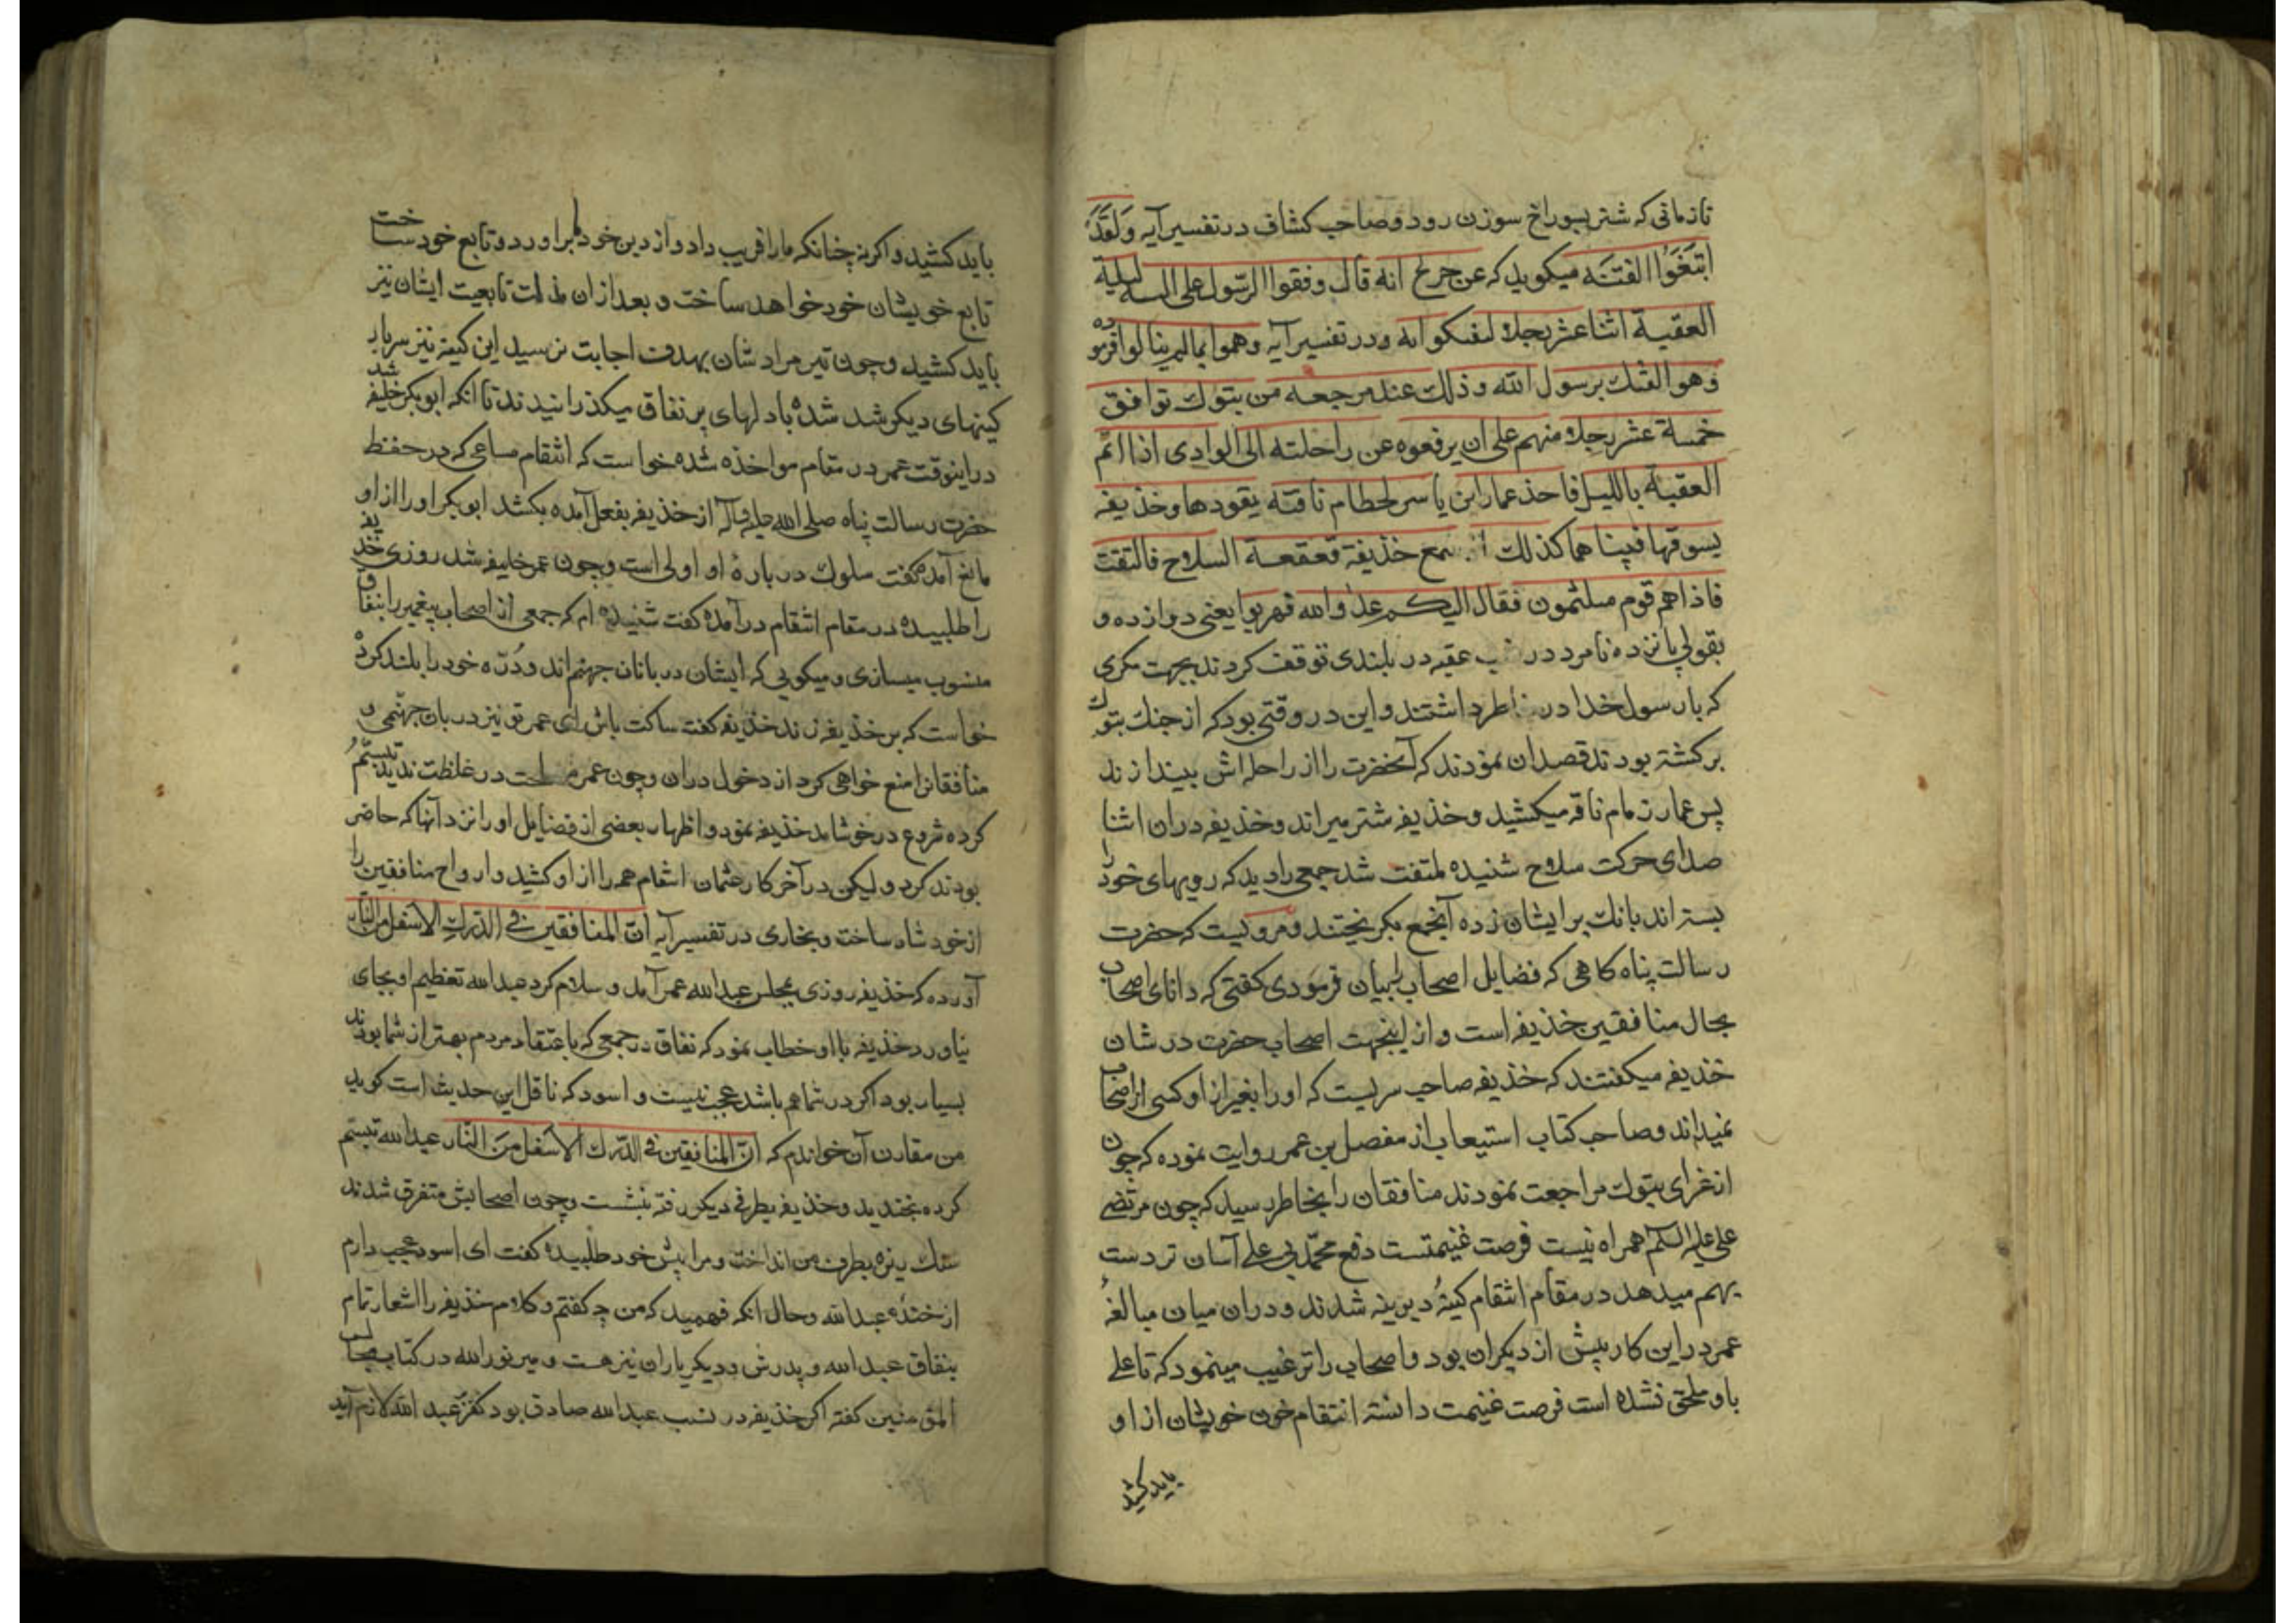 تا زمانی که شتر بسوراخ سوزن رود و صاحب کشاف در تفسیر آیه وَلَقَد
ابتَغَوُا الفتنه میکوید که عن جریح انه قال وقفوا الرّسول علی الله لیلة
العقبة اثنا عشر رجلا لیفتکوا به و در تفسیر آیه وهموا بمالم ینالوا فرموده
وهو الفتك برسول الله وذلك عند مرجعه من تبوك توافق
خمسة عشر رجلا منهم علی ان یرفعوه عن راحلته الی الوادی اذا اتم
العقبة باللیل فاخذ عمار ابن یاسر لخطام ناقته یقودها وخذیفه
یسوقها فبینا هما کذلك اذ سمع خذیفة قعقعة السلاح فالتفت
فاذاهم قوم ملثمون فقال الیکم عدا والله فهربوا یعنی دوازده و
بقولی پانزده نامرد در شب عقبه در بلندی توقف کردند بجهت مکری
که با رسول خدا در خاطر داشتند و این در وقتی بود که از جنك تبوك
برکشته بودند قصد ان نمودند که آنحضرت را از راحله اش بیندازند
پس عمار زمام ناقه میکشید و خذیفه شتر میراند و خذیفه در ان اثنا
صدای حرکت سلاح شنیده ملتفت شد جمعی را دید که رویهای خود را
بسته اند بانك بر ایشان زده آنجمع بکریختند و مرویست که حضرت
رسالت پناه کاهی که فضایل اصحاب را بیان فرمودی کفتی که دانای اصحاب
بحال منافقین خذیفه است و از اینجهت اصحاب حضرت در شان
خذیفه میکفتند که خذیفه صاحب سریست که او را بغیر از او کسی از اصحاب
نمیداند و صاحب کتاب استیعاب از مفصل بن عمر روایت نموده که چون
از غزای تبوك مراجعت نمودند منافقان را بخاطر رسید که چون مرتضی
علی علیه السلم همراه نیست فرصت غنیمتست دفع محمّد بی علی آسان تر دست
بهم میدهد در مقام انتقام کینهٔ دیرینه شدند و در ان میان مبالغهٔ
عمر در این کار بیش از دیکران بود و اصحاب را ترغیب مینمود که تا علی
باو ملحق نشده است فرصت غنیمت دانسته انتقام خون خویشان از او
باید کشید
باید کشید و اکر نه چنانکه ما را فریب داد و از دین خود برآورد و تابع خود ساخت
تابع خویشان خود خواهد ساخت و بعد از ان مذلت تابعیت ایشان نیز
باید کشید و چون تیر مراد شان بهدف اجابت نرسید این کینه نیز سربار
کینهای دیکر شد شده با دلهای پر نفاق میکذرانیدند تا انکه ابوبکر خلیفه شد
در اینوقت عمر در مقام مواخذه شده خواست که انتقام مساعی که در حفظ
حضرت رسالت پناه صلی الله علیه وآله از خذیفه بفعل آمده بکشد ابوبکر او را از او
مانع آمده کفت سلوك در بارهٔ او اولی است و چون عمر خلیفه شد روزی خذیفه
را طلبیده در مقام انتقام در آمده کفت شنیده ام که جمعی از اصحاب پیغمبر را بنفاق
منسوب میسازی و میکویی که ایشان دربانان جهنم اند و دُرّه خود را بلند کرده
خواست که بر خذیفه زند خذیفه کفت ساکت باش ای عمر تو نیز دربان جهنمی و
منافقانرا منع خواهی کرد از دخول در ان و چون عمر در غلظت ندید تبسّم
کرده شروع در خوشامد خذیفه نمود و اظهار بعضی از فضایل او را نزد آنها که حاضر
بودند کرد و لیکن در آخر کار عثمان انتقام همه را از او کشید و ارواح منافقین را
از خود شاد ساخت و بخاری در تفسیر آیه انّ المنافقین فی الدّرك الاسفل من النّار
آورده که خذیفه روزی بمجلس عبدالله عمر آمد و سلام کرد عبدالله تعظیم او بجای
نیاورد خذیفه با او خطاب نمود که نفاق در جمعی که باعتقاد مردم بهتر از شما بودند
بسیار بود اکر در شما هم باشد عجب نیست و اسود که ناقل این حدیث است کوید
من مقارن آن خواندم که انّ المنافقین فی الدّرك الاسفل منَ النّار عبدالله تبسّم
کرده بخندید و خذیفه بطرفی دیکر رفته بنشست و چون اصحابش متفرق شدند
سنك ریزه بطرف من انداخت و مرا پیش خود طلبیده کفت ای اسود عجب دارم
از خندهٔ عبدالله و حال انکه فهمید که من چه کفتم و کلام خذیفه را اشعار تمام
بنفاق عبدالله و پدرش و دیکر یاران نیز هست و میر نورالله در کتاب مجالس
المؤمنین کفته اکر خذیفه در نسب عبدالله صادق بود کفر عبدالله لازم آید